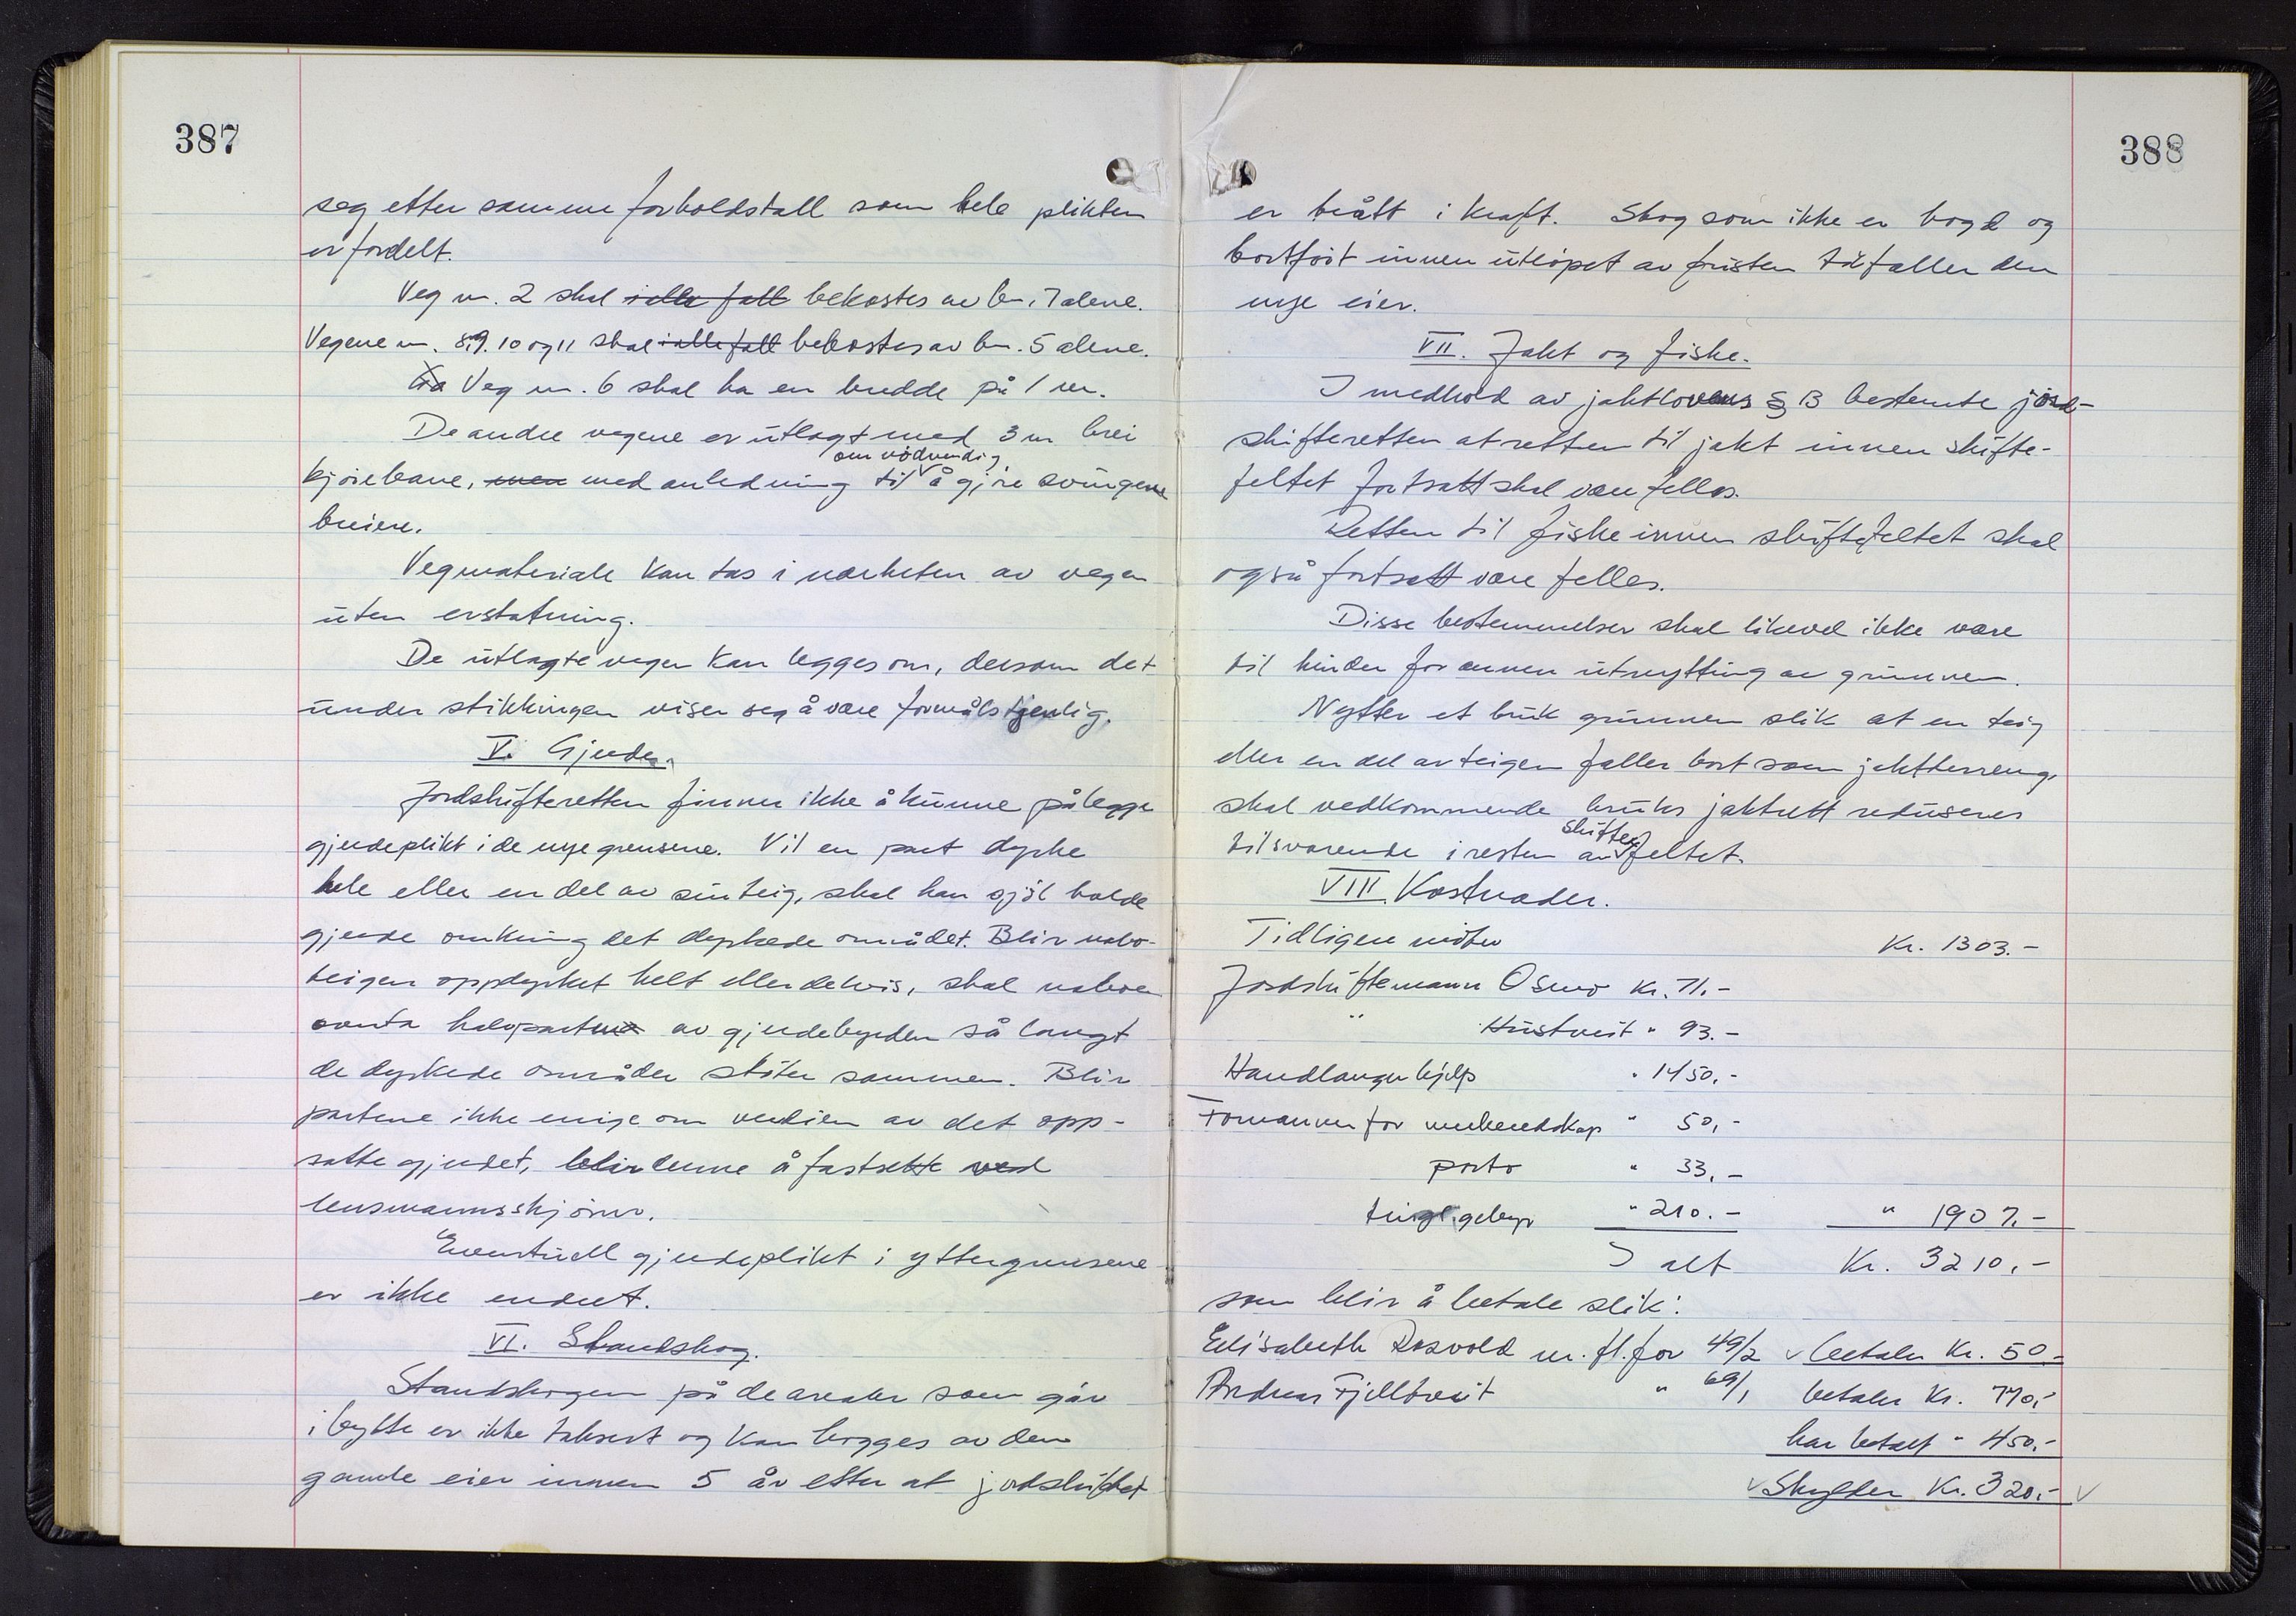 387
seg etter samme forholdstall som hele plikten
er fordelt.
Veg nr. 2 skal i alle fall bekostes av bn. 7 alene.
Vegene nr. 8, 9, 10 og 11 skal i alle fall bekostes av bn. 5 alene.
Veg nr. 6 skal ha en bredde på 1 m.
De andre vegene er utlagt med 3 m brei
om nødvendig
kjørebane, men med anledning til å gjøre svingene
breiere.
Vegmateriale kan tas i nærheten av vegen
uten erstatning.
De utlagte veger kan legges om, dersom det
under stikkingen viser seg å være formålstjenlig.
V. Gjerder.
Jordskifteretten finner ikke å kunne pålegge
gjerdeplikt i de nye grensene. Vil en part dyrke
hele eller en del av sin teig, skal han sjøl holde
gjerde omkring det dyrkede området. Blir nabo-
teigen oppdyrket helt eller delvis, skal naboen
overta halvparten av gjerdebyrden så langt
de dyrkede områder støter sammen. Blir
partene ikke enige om verdien av det opp-
satte gjerdet, blir denne å fastsette ved
lensmannsskjønn.
Eventuell gjerdeplikt i yttergrensene
er ikke endret.
VI. Standskog.
Standskogen på de arealer som går
i bytte er ikke taksert og kan hogges av den
gamle eier innen 5 år etter at jordskiftet
388
er trått i kraft. Skog som ikke er hogd og
bortført innen utløpet av fristen tilfaller den
nye eier.
VII. Jakt og fiske.
I medhold av jaktlovens § 13 bestemte jord-
skifteretten at retten til jakt innen skifte-
feltet fortsatt skal være felles.
Retten til fiske innen skiftefeltet skal
også fortsatt være felles.
Disse bestemmelser skal likevel ikke være
til hinder for annen utnytting av grunnen.
Nytter et bruk grunnen slik at en teig
eller en del av teigen faller bort som jaktterreng,
skal vedkommende bruks jaktrett reduseres
skifte
tilsvarende i resten av feltet.
VIII Kostnader.
Tidligere møter Kr. 1303.-
Jordskiftemann Osmo Kr. 71.-
" Hustveit " 93.-
Handlangerhjelp " 1450.-
Formannen for merkeredskap " 50,-
porto " 33,-
tingl.gebyr " 210.- " 1907,-
I alt Kr. 3210,-
som blir å betale slik:
Elisabeth Rosvold m. fl. for 49/2 betaler Kr. 50.-
Andreas Fjelltveit " 69/1 betaler Kr. 770,-
har betalt " 450.-
Skylder Kr. 320.-